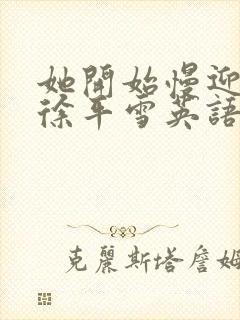 她開始慢迎
徐平雪英語
克麗斯塔詹姆